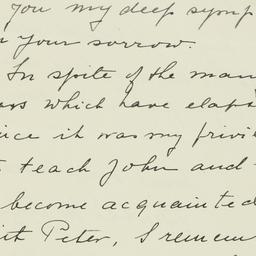 you my deep symp
your sorrow.
In spite of the man
which have elaps
it was my privi
teach John and
become acquainted
Peter, I remem